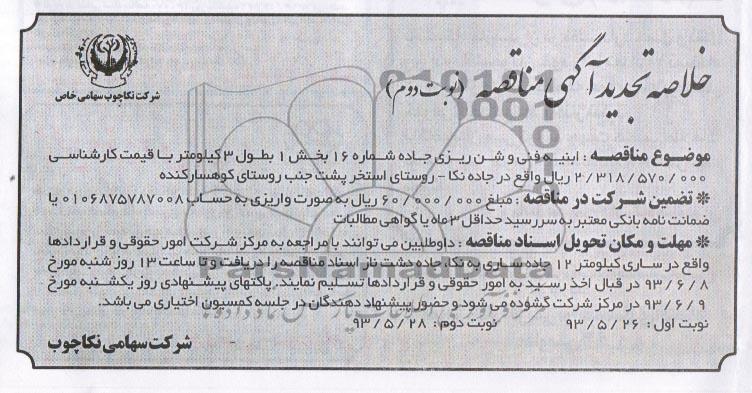 خلاصه تجدید آگهی مناقصه (نوبت دوم)
شرکت نکاچوب سهامی خاص
موضوع مناقصه : ابنیه فنی و شن ریزی جاده شماره ۱۶ بخش ۱ بطول ۳ کیلومتر با قیمت کارشناسی
۲/۳۱۸/۵۷۰/۰۰۰ ریال واقع در جاده نکا - روستای استخر پشت جنب روستای کوهسارکنده
* تضمین شرکت در مناقصه : مبلغ ۶۰/۰۰۰/۰۰۰ ریال به صورت واریزی به حساب ۰۱۰۶۸۷۵۷۸۷۰۰۸ یا
ضمانت نامه بانکی معتبر به سررسید حداقل ۳ ماه یا گواهی مطالبات
* مهلت و مکان تحویل اسناد مناقصه : داوطلبین می توانند با مراجعه به مرکز شرکت امور حقوقی و قراردادها
واقع در ساری کیلومتر ۱۲ جاده ساری به نکا، جاده دشت ناز اسناد مناقصه را دریافت و تا ساعت ۱۳ روز شنبه مورخ
۹۳/۶/۸ در قبال اخذ رسید به امور حقوقی و قراردادها تسلیم نمایند. پاکتهای پیشنهادی روز یکشنبه مورخ
۹۳/۶/۹ در مرکز شرکت گشوده می شود و حضور پیشنهاد دهندگان در جلسه کمسیون اختیاری می باشد.
نوبت اول : ۹۳/۵/۲۶ نوبت دوم : ۹۳/۵/۲۸
شرکت سهامی نکاچوب
ParsNamadData